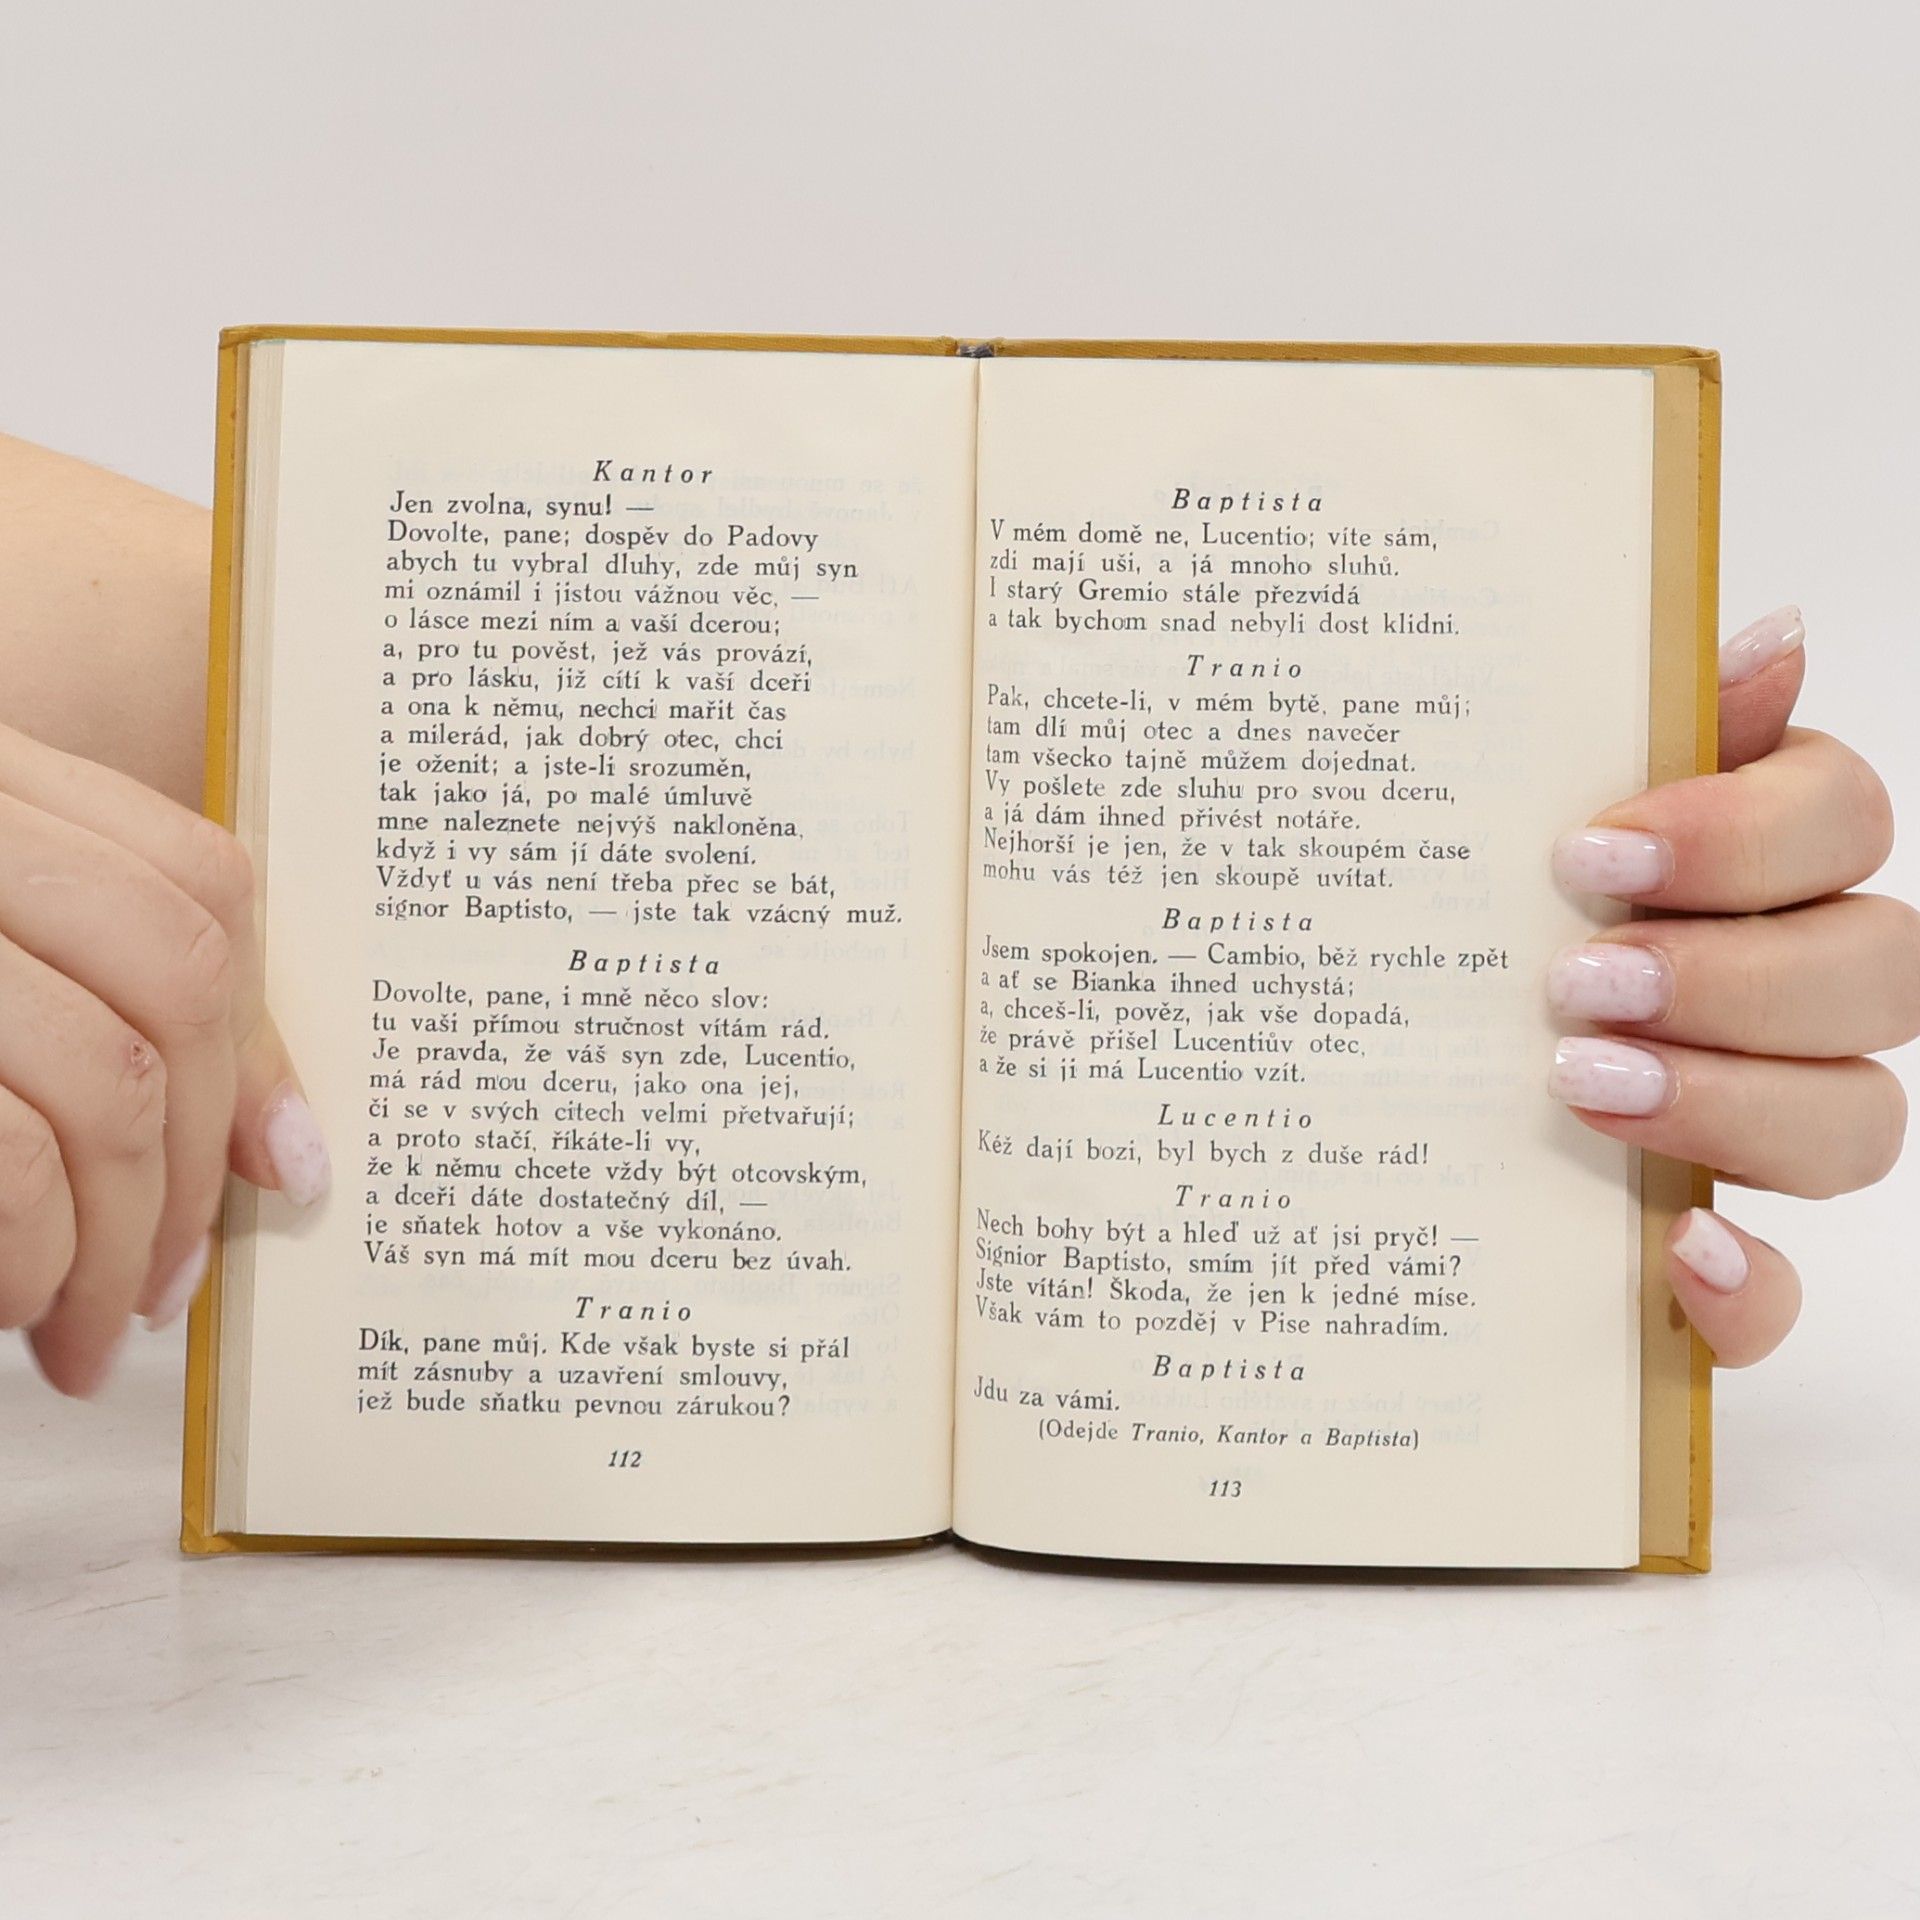 Kantor
Jen zvolna, synu! —
Dovolte, pane; dospěv do Padovy
abych tu vybral dluhy, zde můj syn
mi oznámil i jistou vážnou věc, —
o lásce mezi ním a vaší dcerou;
a, pro tu pověst, jež vás provází,
a pro lásku, již cítí k vaší dceři
a ona k němu, nechci mařit čas
a milerád, jak dobrý otec, chci
je oženit; a jste-li srozuměn,
tak jako já, po malé úmluvě
mne naleznete nejvýš nakloněna,
když i vy sám jí dáte svolení.
Vždyť u vás není třeba přec se bát,
signor Baptisto, — jste tak vzácný muž.
Baptista
Dovolte, pane, i mně něco slov:
tu vaši přímou stručnost vítám rád.
Je pravda, že váš syn zde, Lucentio,
má rád mou dceru, jako ona jej,
či se v svých citech velmi přetvařují;
a proto stačí, říkáte-li vy,
že k němu chcete vždy být otcovským,
a dceři dáte dostatečný díl, —
je sňatek hotov a vše vykonáno.
Váš syn má mít mou dceru bez úvah.
Tranio
Dík, pane můj. Kde však byste si přál
mít zásnuby a uzavření smlouvy,
jež bude sňatku pevnou zárukou?
112
Baptista
V mém domě ne, Lucentio; víte sám,
zdi mají uši, a já mnoho sluhů.
I starý Gremio stále přezvídá
a tak bychom snad nebyli dost klidni.
Tranio
Pak, chcete-li, v mém bytě, pane můj;
tam dlí můj otec a dnes navečer
tam všecko tajně můžem dojednat.
Vy pošlete zde sluhu pro svou dceru,
a já dám ihned přivést notáře.
Nejhorší je jen, že v tak skoupém čase
mohu vás též jen skoupě uvítat.
Baptista
Jsem spokojen. — Cambio, běž rychle zpět
a ať se Bianka ihned uchystá;
a, chceš-li, pověz, jak vše dopadá,
že právě přišel Lucentiův otec,
a že si ji má Lucentio vzít.
Lucentio
Kéž dají bozi, byl bych z duše rád!
Tranio
Nech bohy být a hleď už ať jsi pryč! —
Signior Baptisto, smím jít před vámi?
Jste vítán! Škoda, že jen k jedné míse.
Však vám to později v Pise nahradím.
Baptista
Jdu za vámi.
(Odejde Tranio, Kantor a Baptista)
113